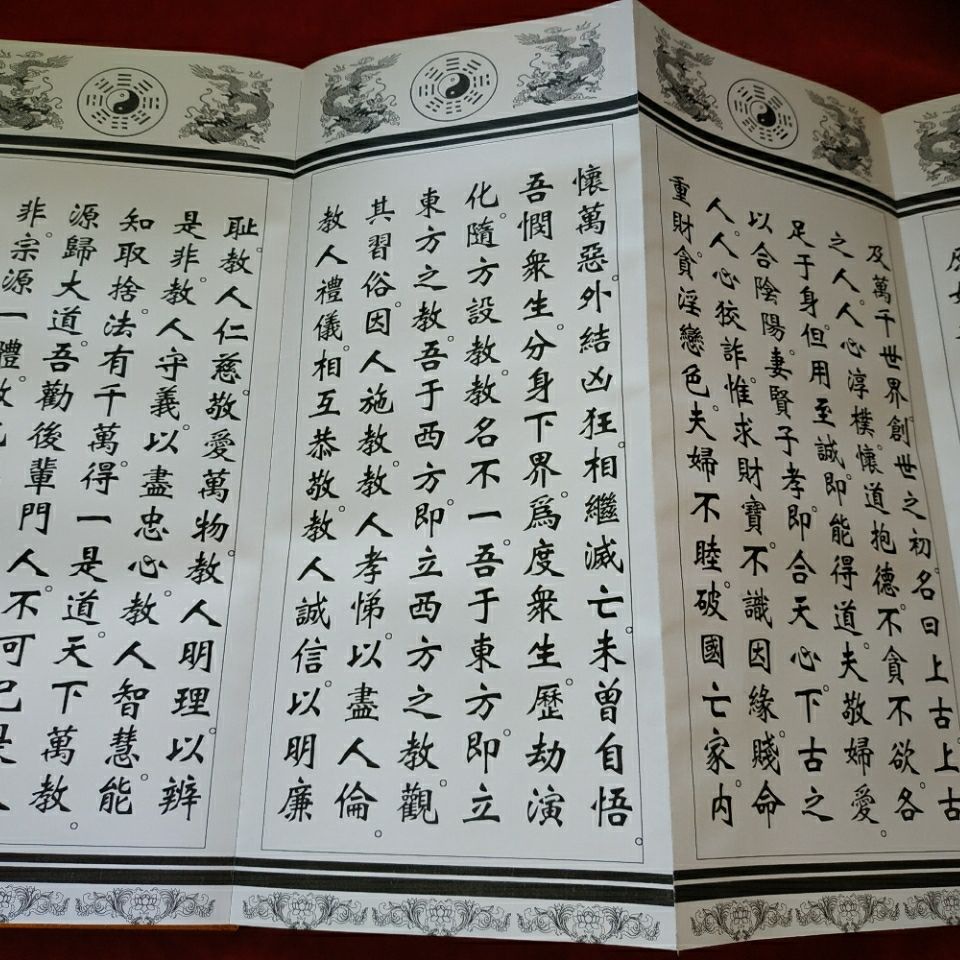 及萬千世界創世之初。名曰上古。上古
之人。人心淳樸。懷道抱德。不貪不欲。各
足于身。但用至誠。即能得道。夫敬婦愛。
以合陰陽。妻賢子孝。即合天心。下古之
人。人心狡詐。惟求財寶。不識因緣。賤命
重財。貪淫戀色。夫婦不睦。破國亡家。内
懷萬惡。外結凶狂。相繼滅亡。未曾自悟。
吾憫衆生。分身下界。爲度衆生。歷劫演
化。隨方設教。教名不一。吾于東方。即立
東方之教。吾于西方。即立西方之教。觀
其習俗。因人施教。教人孝悌。以盡人倫。
教人禮儀。相互恭敬。教人誠信。以明廉
耻。教人仁慈。敬愛萬物。教人明理。以辨
是非。教人守義。以盡忠心。教人智慧。能
知取捨。法有千萬。得一是道。天下萬教。
源歸大道。吾勸後輩門人。不可己是人
非。宗源一體。